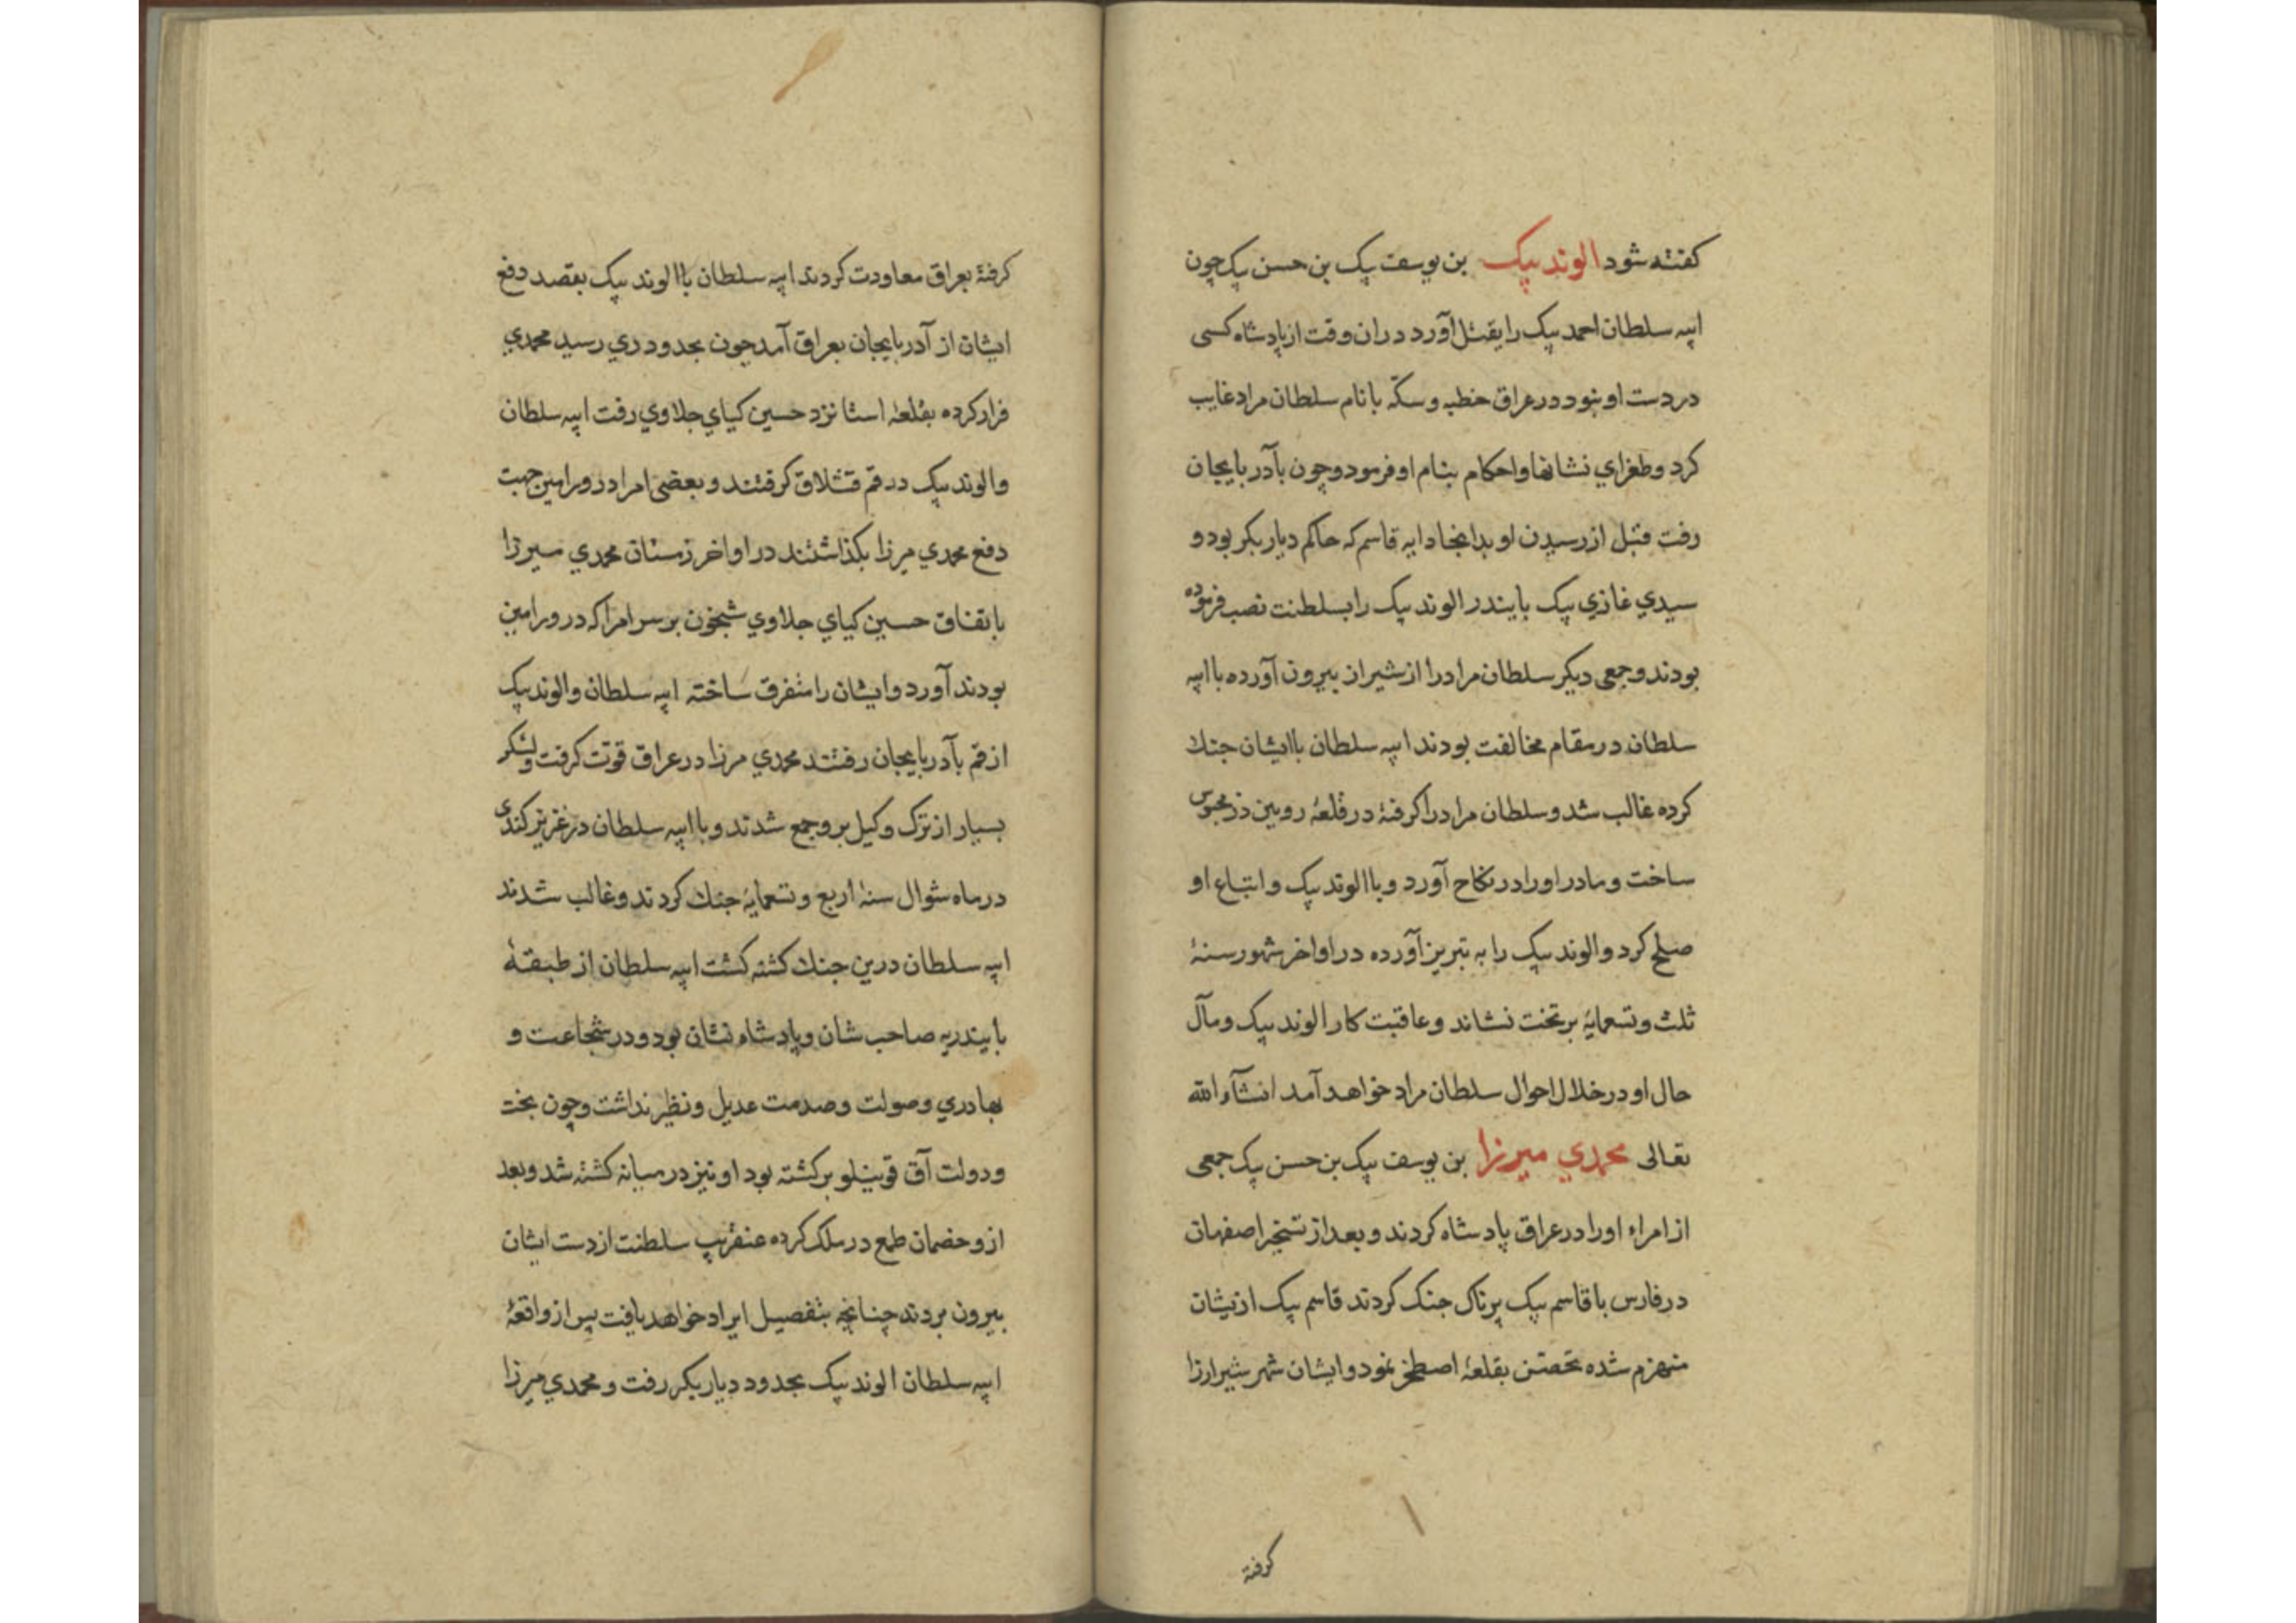 کفته شود الوند بیک بن یوسف بیک بن حسن بیک چون
ایبه سلطان احمد بیک را بقتل آورد دران وقت از پادشاه کسی
در دست او نبود در عراق خطبه و سکّه بانام سلطان مراد غایب
کرد و طغرای نشانها و احکام بنام او فرمود و چون بآدربایجان
رفت قبل از رسیدن او بدانجا دایه قاسم که حاکم دیاربکر بود و
سیدی غازی بیک بایندر الوند بیک را بسلطنت نصب فرموده
بودند و جمعی دیکر سلطان مراد را از شیراز بیرون آورده با ایبه
سلطان در مقام مخالفت بودند ایبه سلطان با ایشان جنك
کرده غالب شد و سلطان مراد را کرفتهٔ در قلعهٔ رویین دز محبوس
ساخت و مادر او را در نکاح آورد و با الوند بیک و اتباع او
صلح کرد و الوند بیک را به تبریز آورده در اواخر شهور سنهٔ
ثلث و تسعمایهٔ بر تخت نشاند و عاقبت کار الوند بیک و مآل
حال او در خلال احوال سلطان مراد خواهد آمد انشآء الله
تعالی محمدي میرزا بن یوسف بیک بن حسن بیک جمعی
از امراء او را در عراق پادشاه کردند و بعد از تسخیر اصفهان
در فارس با قاسم بیک پرناک جنک کردند قاسم بیک ازیشان
منهزم شده تحصّن بقلعهٔ اصطخر نمود و ایشان شهر شیراز را
کرفتهٔ
کرفتهٔ بعراق معاودت کردند ایبه سلطان با الوند بیک بقصد دفع
ایشان از آدربایجان بعراق آمد چون بحدود ري رسید محمدي
فرار کرده بقلعهٔ استا نزد حسین کیاي جلاوي رفت ایبه سلطان
و الوند بیک در قم قشلاق کرفتند و بعضی امرا در ورامین جهت
دفع محمدي میرزا بکذاشتند در اواخر زمستان محمدي میرزا
باتفاق حسین کیاي جلاوي شبخون بر سر امرا که در ورامین
بودند آورد و ایشان را متفرق ساخته ایبه سلطان و الوند بیک
از قم بآدربایجان رفتند محمدي مرزا در عراق قوّت کرفت و لشکر
بسیار از ترک و کیل برو جمع شدند و با ایبه سلطان در عزیز کندی
در ماه شوال سنهٔ اربع و تسعمایهٔ جنك کردند و غالب شدند
ایبه سلطان درین جنك کشته کشت ایبه سلطان از طبقهٔ
بایندریه صاحب شان و پادشاه نشان بود و در شجاعت و
بهادري و صولت و صدمت عدیل و نظیر نداشت و چون بخت
و دولت آق قوینلو برکشته بود او نیز در میانه کشته شد و بعد
ازو خصمان طمع در ملک کرده عنقریب سلطنت از دست ایشان
بیرون بردند چنانچه بتفصیل ایراد خواهد یافت پس از واقعهٔ
ایبه سلطان الوند بیک بحدود دیاربکر رفت و محمدي میرزا